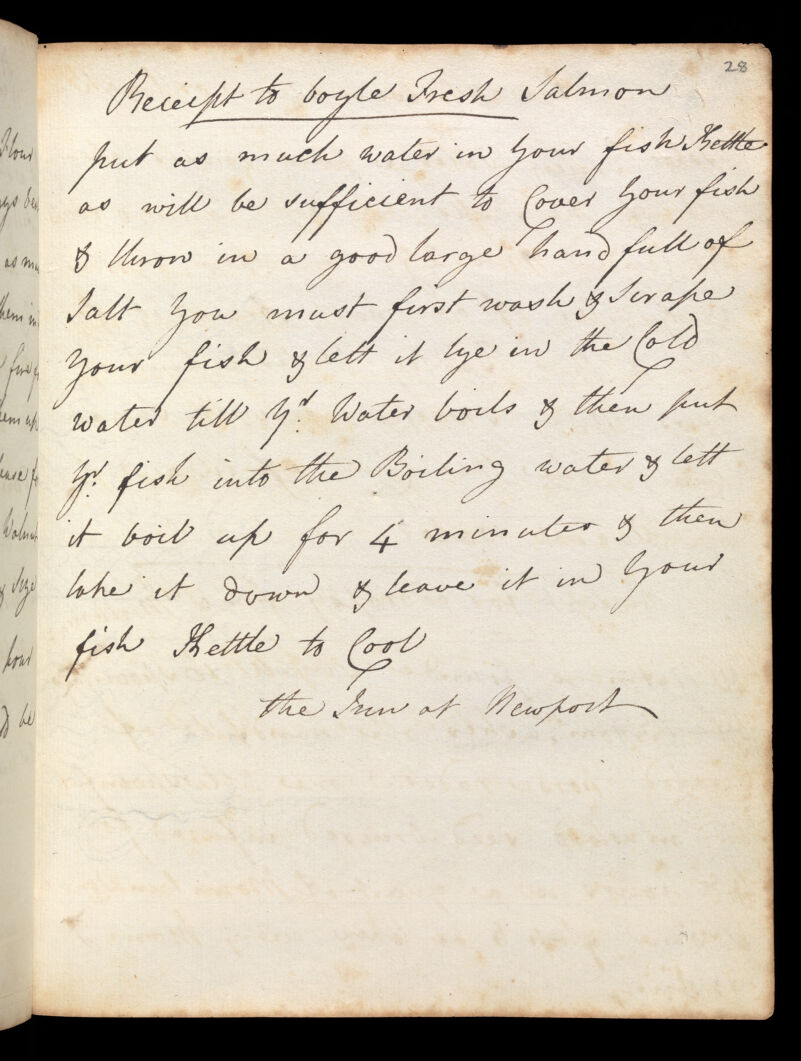 28
Receipt to boyle Fresh Salmon
put as much water in your fish Kettle
as will be sufficient to Cover your fish
& throw in a good large hand full of
Salt You must first wash & Scrape
your fish & lett it lye in the Cold
water till Yr. Water boils & then put
Yr. fish into the Boiling water & lett
it boil up for 4 minutes & then
take it down & leave it in your
fish Kettle to Cool
the Inn at Newport